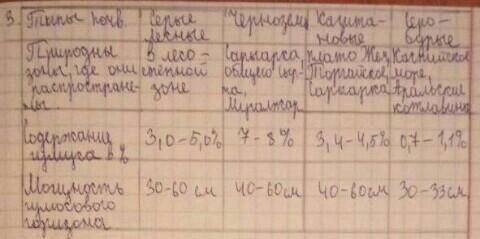 3. Типы почв. Серые лесные Чернозем Кашта-новые Серо-бурые
Природны зоны, где они распростране-ны. В лесо-степной зоне Сарыарка, общего Мугалжар плато Жез Торгайское, Сарыарка Каспийское море, Аральская котловина
Содержание гумуса в % 3,0-5,0% 7-8% 3,4-4,5% 0,7-1,1%
Мощность гумосового горизона 30-60 см 40-60см 40-60см 30-33см